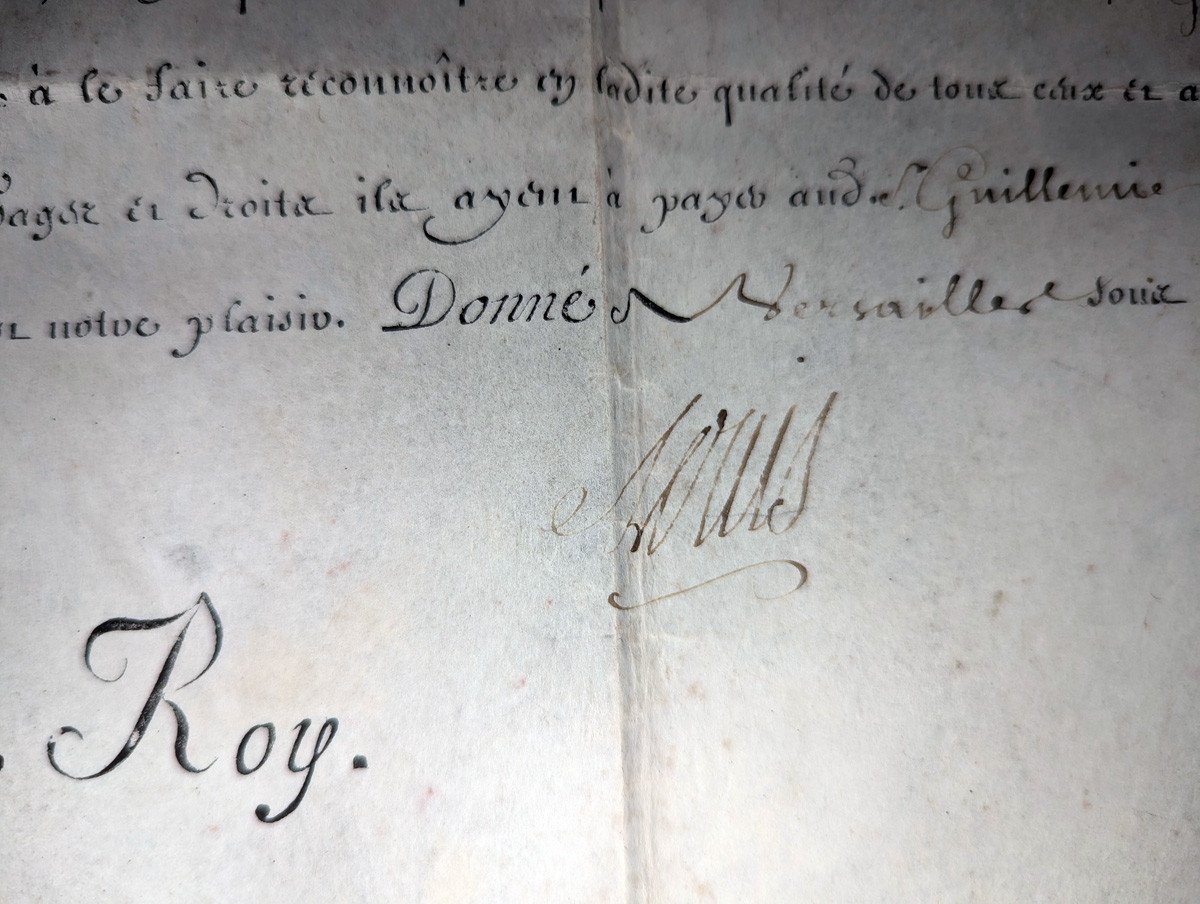 à le faire reconnoître en ladite qualité de tous ceux et a
Gages et droits ils ayent à payer aud. Sr. Guillemin
notre plaisir. Donné à Versailles sous
Louis
Roy.